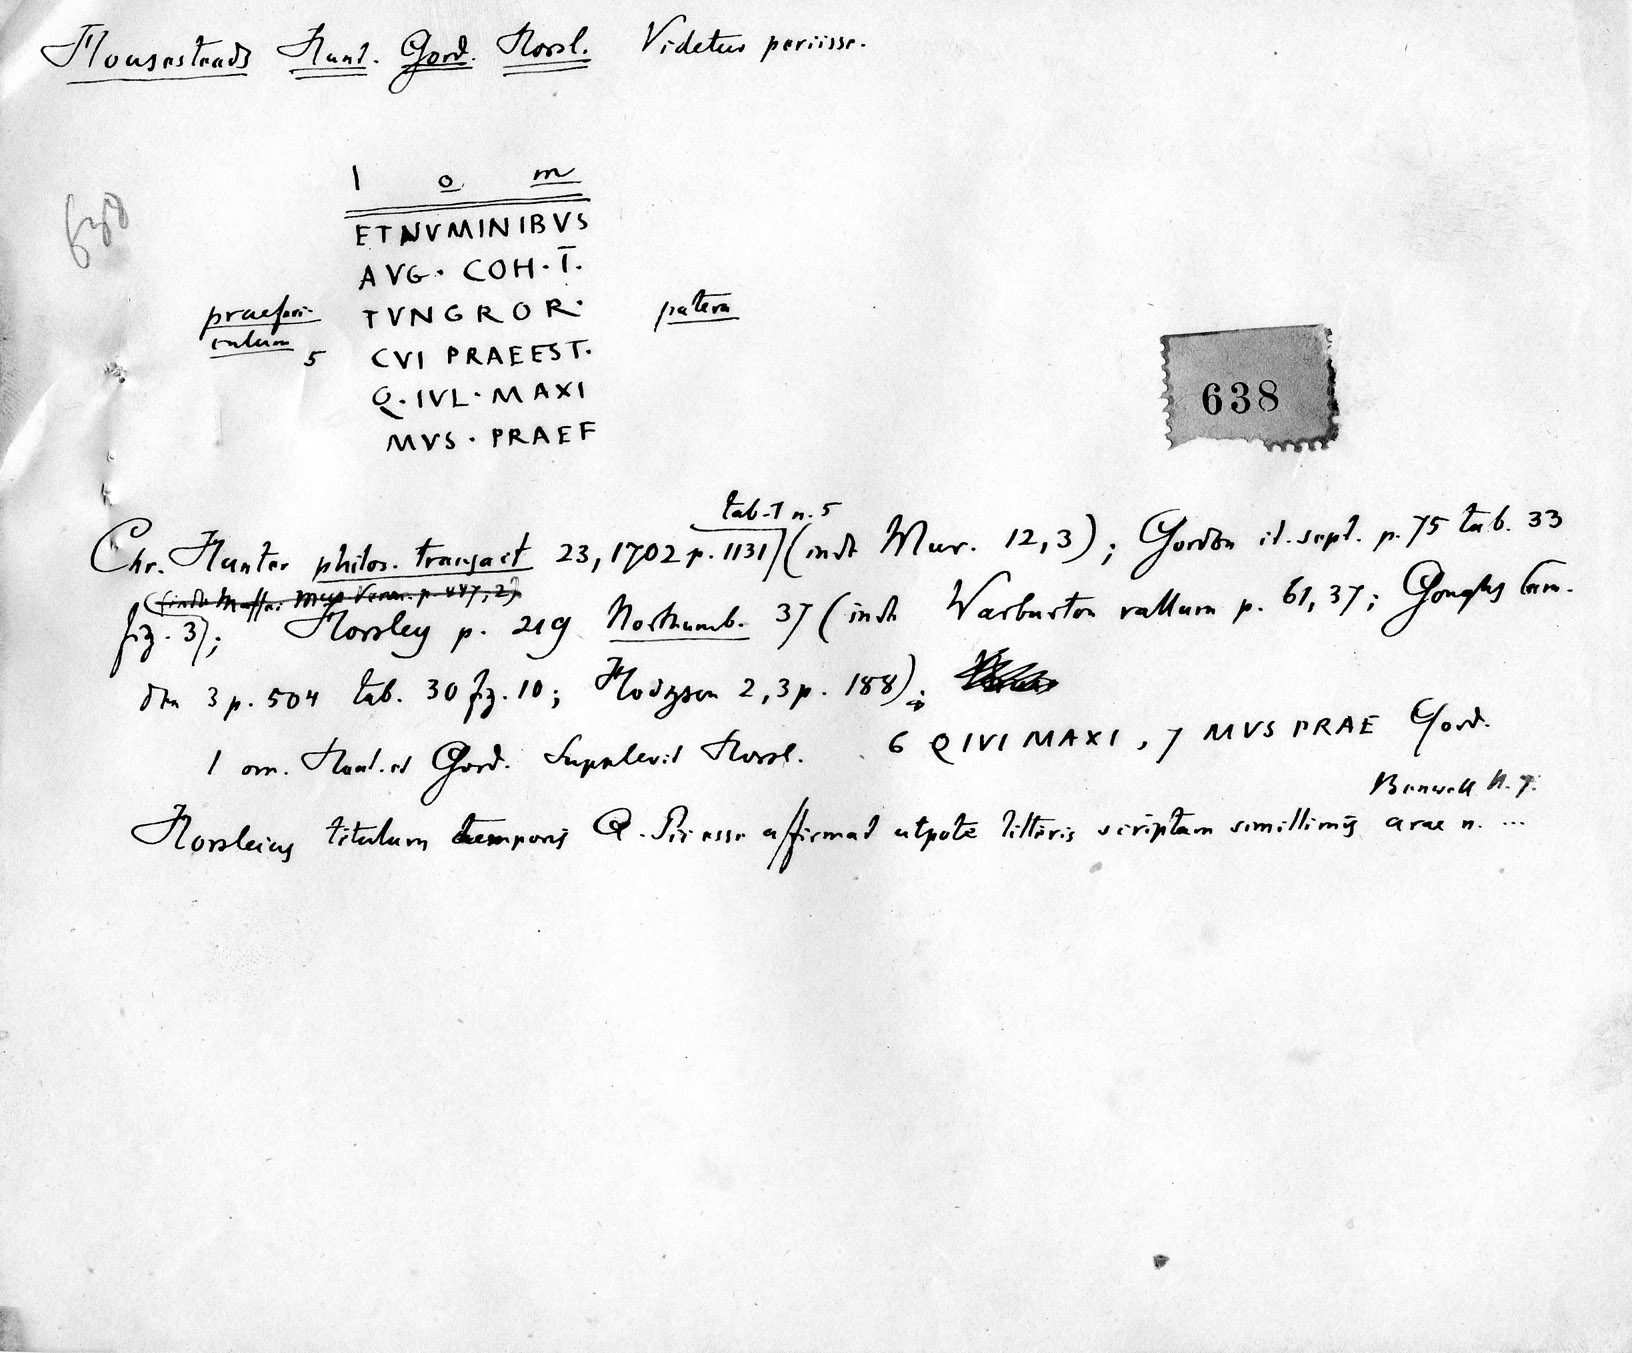 Housesteads Hunt. Gord. Horsl. Videtur periisse.
638
I o m
ET NVMINIBVS
AVG · COH · I ·
praeferi- TVNGROR · patera
culum 5 CVI PRAEEST ·
Q · IVL · MAXI
MVS · PRAEF
638
tab. I n. 5
Chr. Hunter philos. transact 23, 1702 p. 1131 (inde Mur. 12, 3); Gordon it. sept. p. 75 tab. 33
(inde Maffei Mus Veron. p. 447, 2)
fig. 3); Horsley p. 219 Northumb. 37 (inde Warburton vallum p. 61, 37; Goughs Cam-
den 3 p. 504 tab. 30 fig. 10; Hodgson 2, 3 p. 188);
1 om. Hunt. et Gord. Supplevit Horsl. 6 Q IVI MAXI, 7 MVS PRAE Gord.
Benwell n. 7.
Horsleius titulum temporis Q. Pii esse affirmat utpote litteris scriptum simillimis arae n. ...